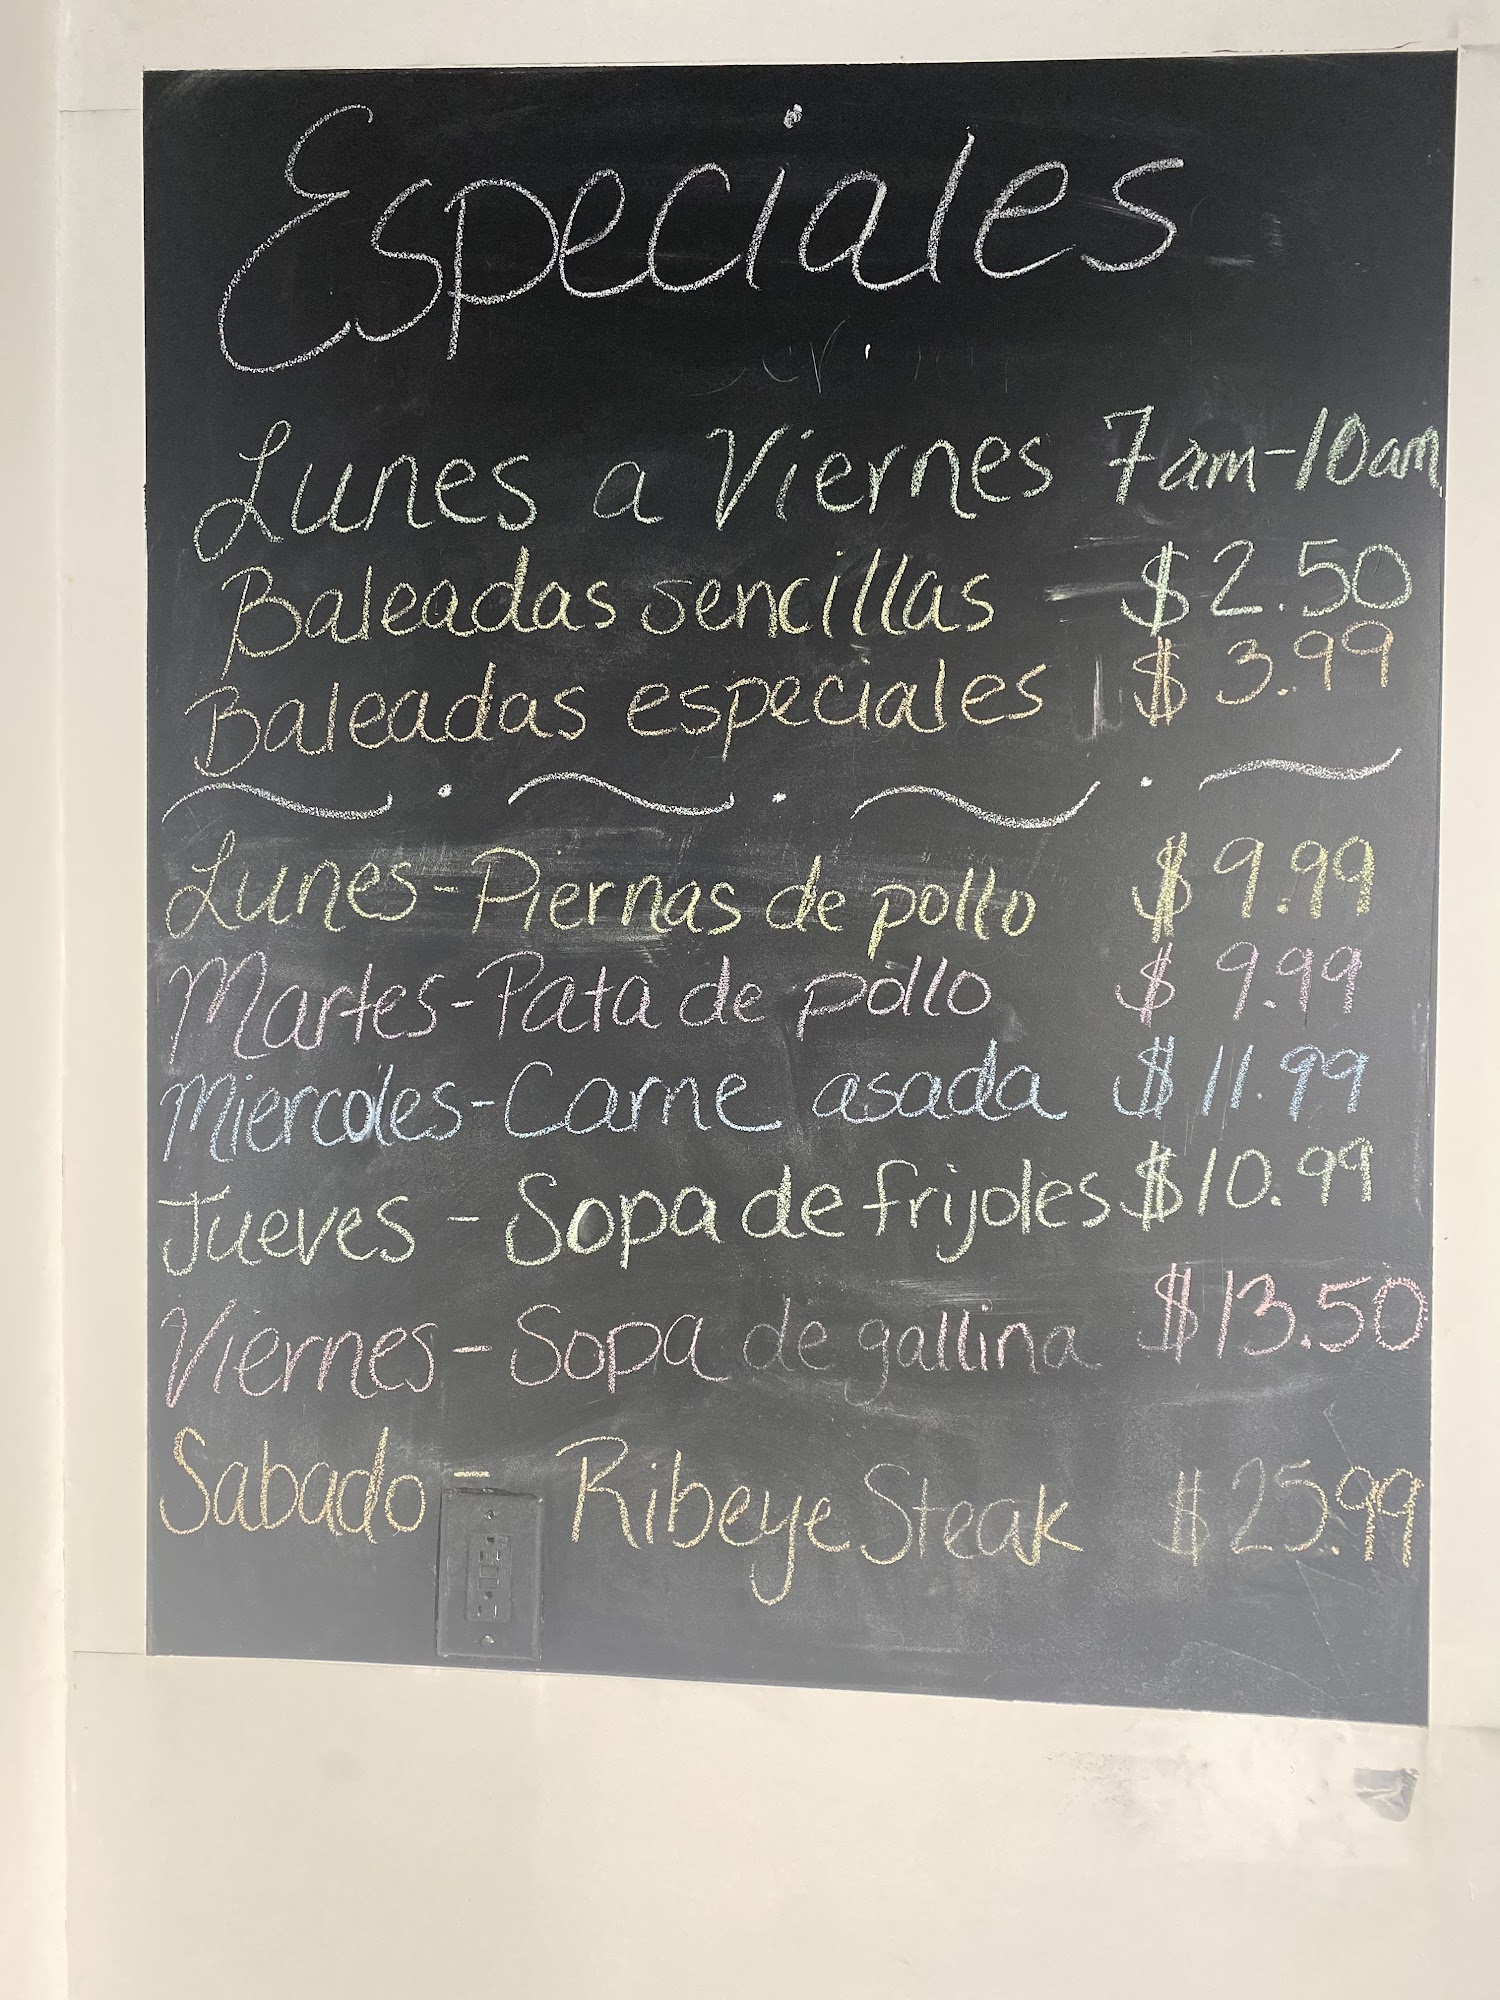 Especiales
Lunes a Viernes 7am-10am
Baleadas sencillas $2.50
Baleadas especiales $3.99
Lunes-Piernas de pollo $9.99
Martes-Pata de pollo $9.99
Miercoles-Carne asada $11.99
Jueves - Sopa de frijoles $10.99
Viernes-Sopa de gallina $13.50
Sabado - Ribeye Steak $25.99